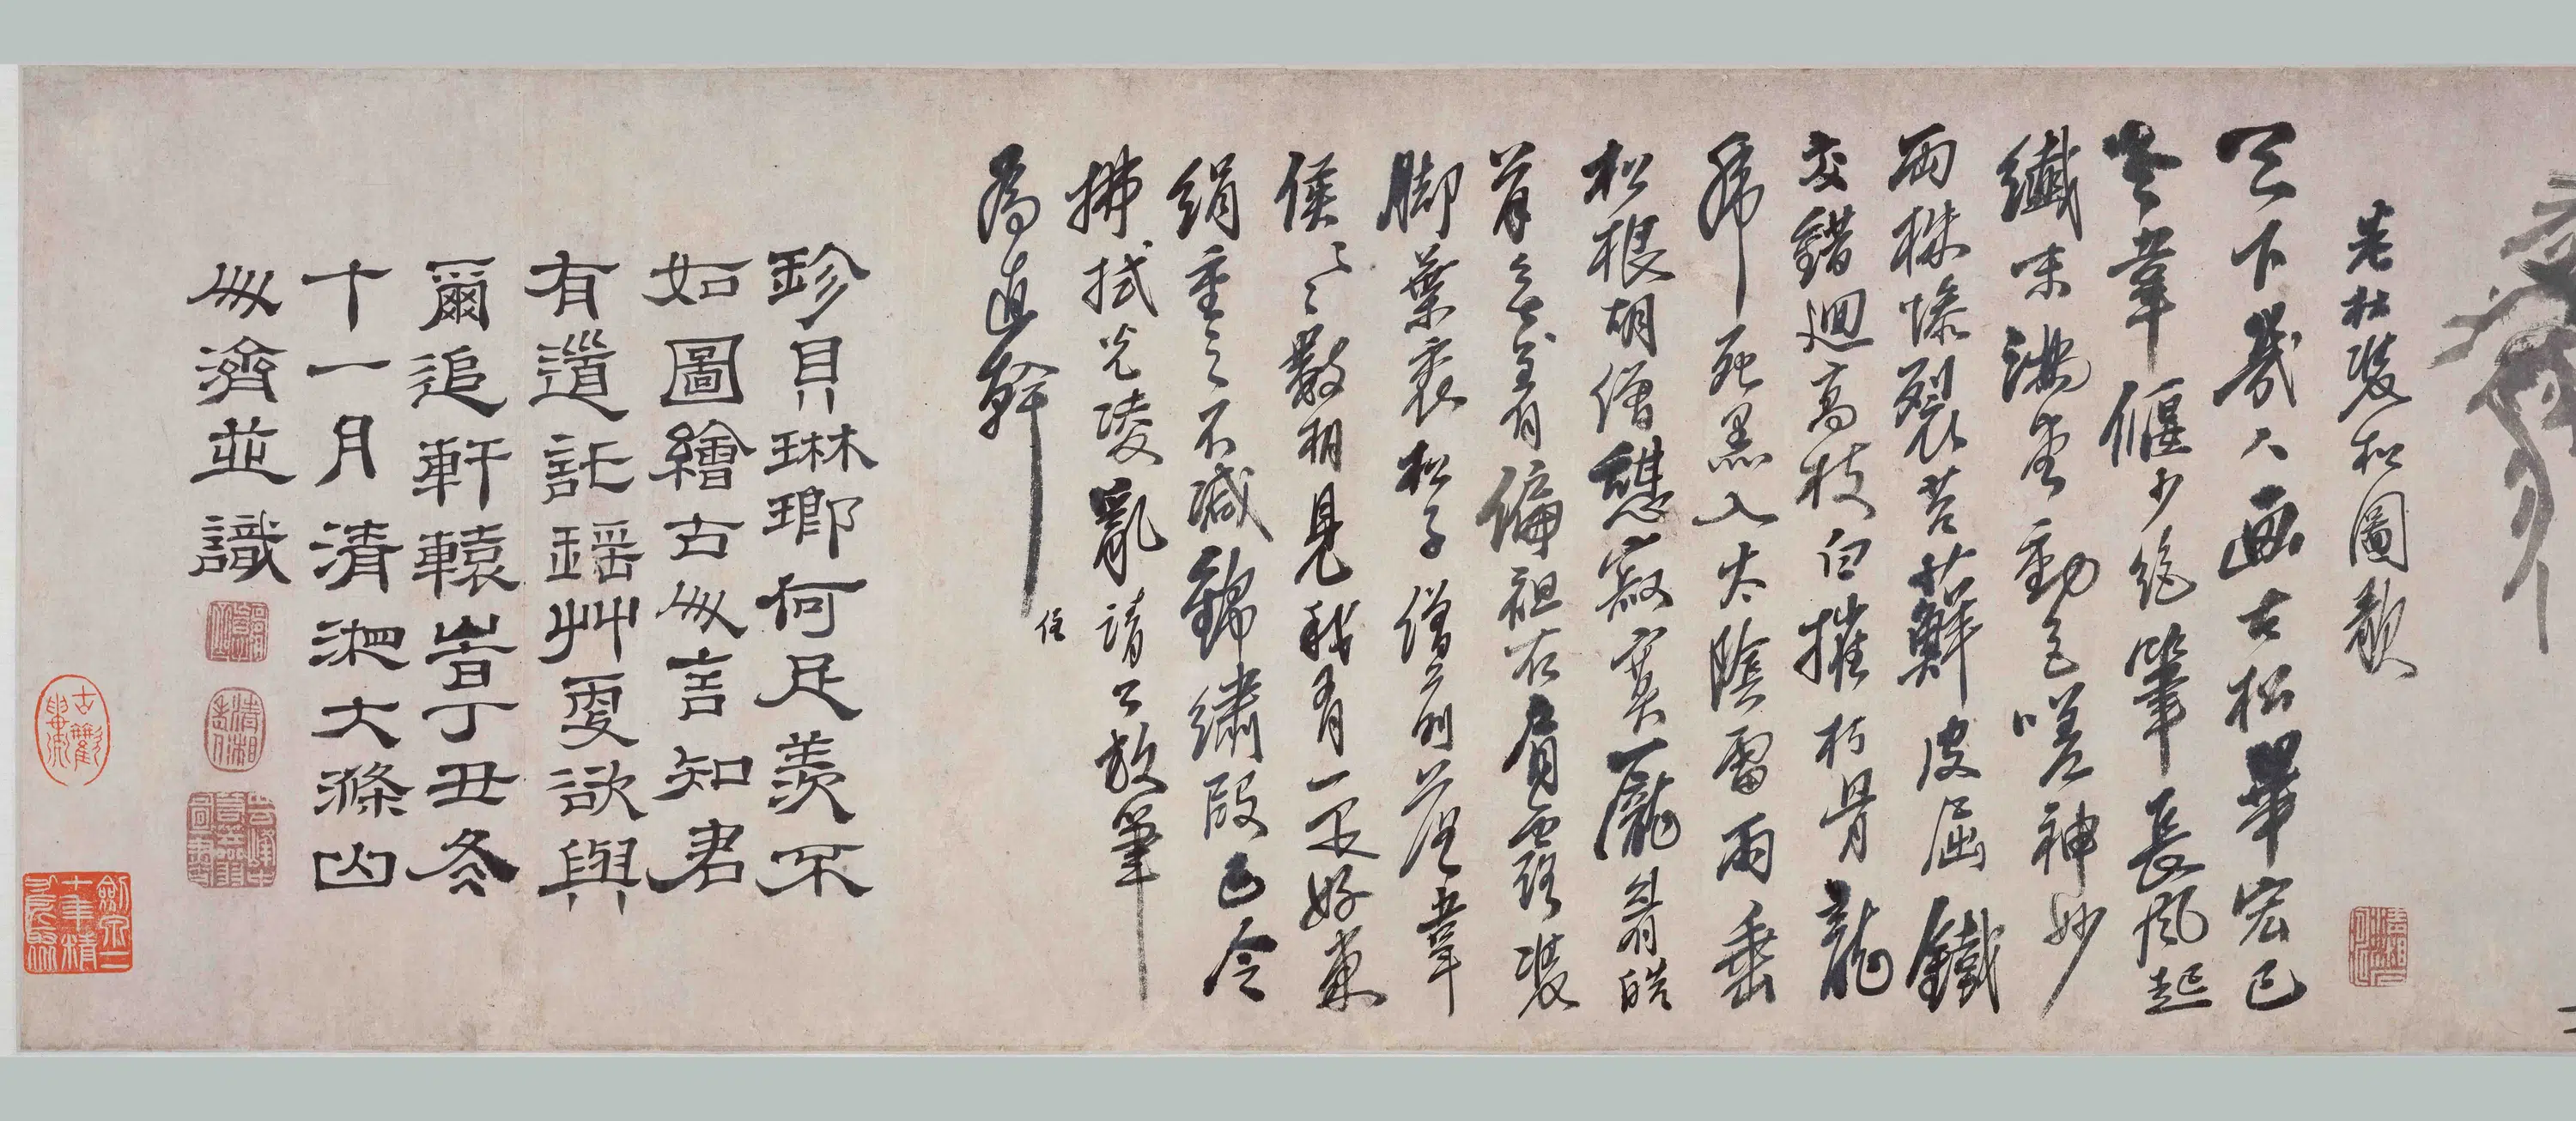 老杜雙松圖歌
天下幾人画古松畢宏已
老韋偃少絶筆長風起
纖末滿堂動色嗟神妙
兩株慘裂苔蘚皮屈鐵
交錯迴高枝白摧朽骨龍
虎死黑入太陰雷雨垂
松根胡僧憩寂寞龐眉皓
首無住著偏袒右肩露雙
脚葉裏松子僧前落韋
侯〻〻數相見我有一疋好東
絹重之不減錦繡段已令
拂拭光凌亂請公放筆
為直幹
住
珍貝琳瑯何足羨不
如圖繪古𠈌言知君
有道託瑶艸更欲與
爾追軒轅旹丁丑冬
十一月清湘大滌山
濟並識